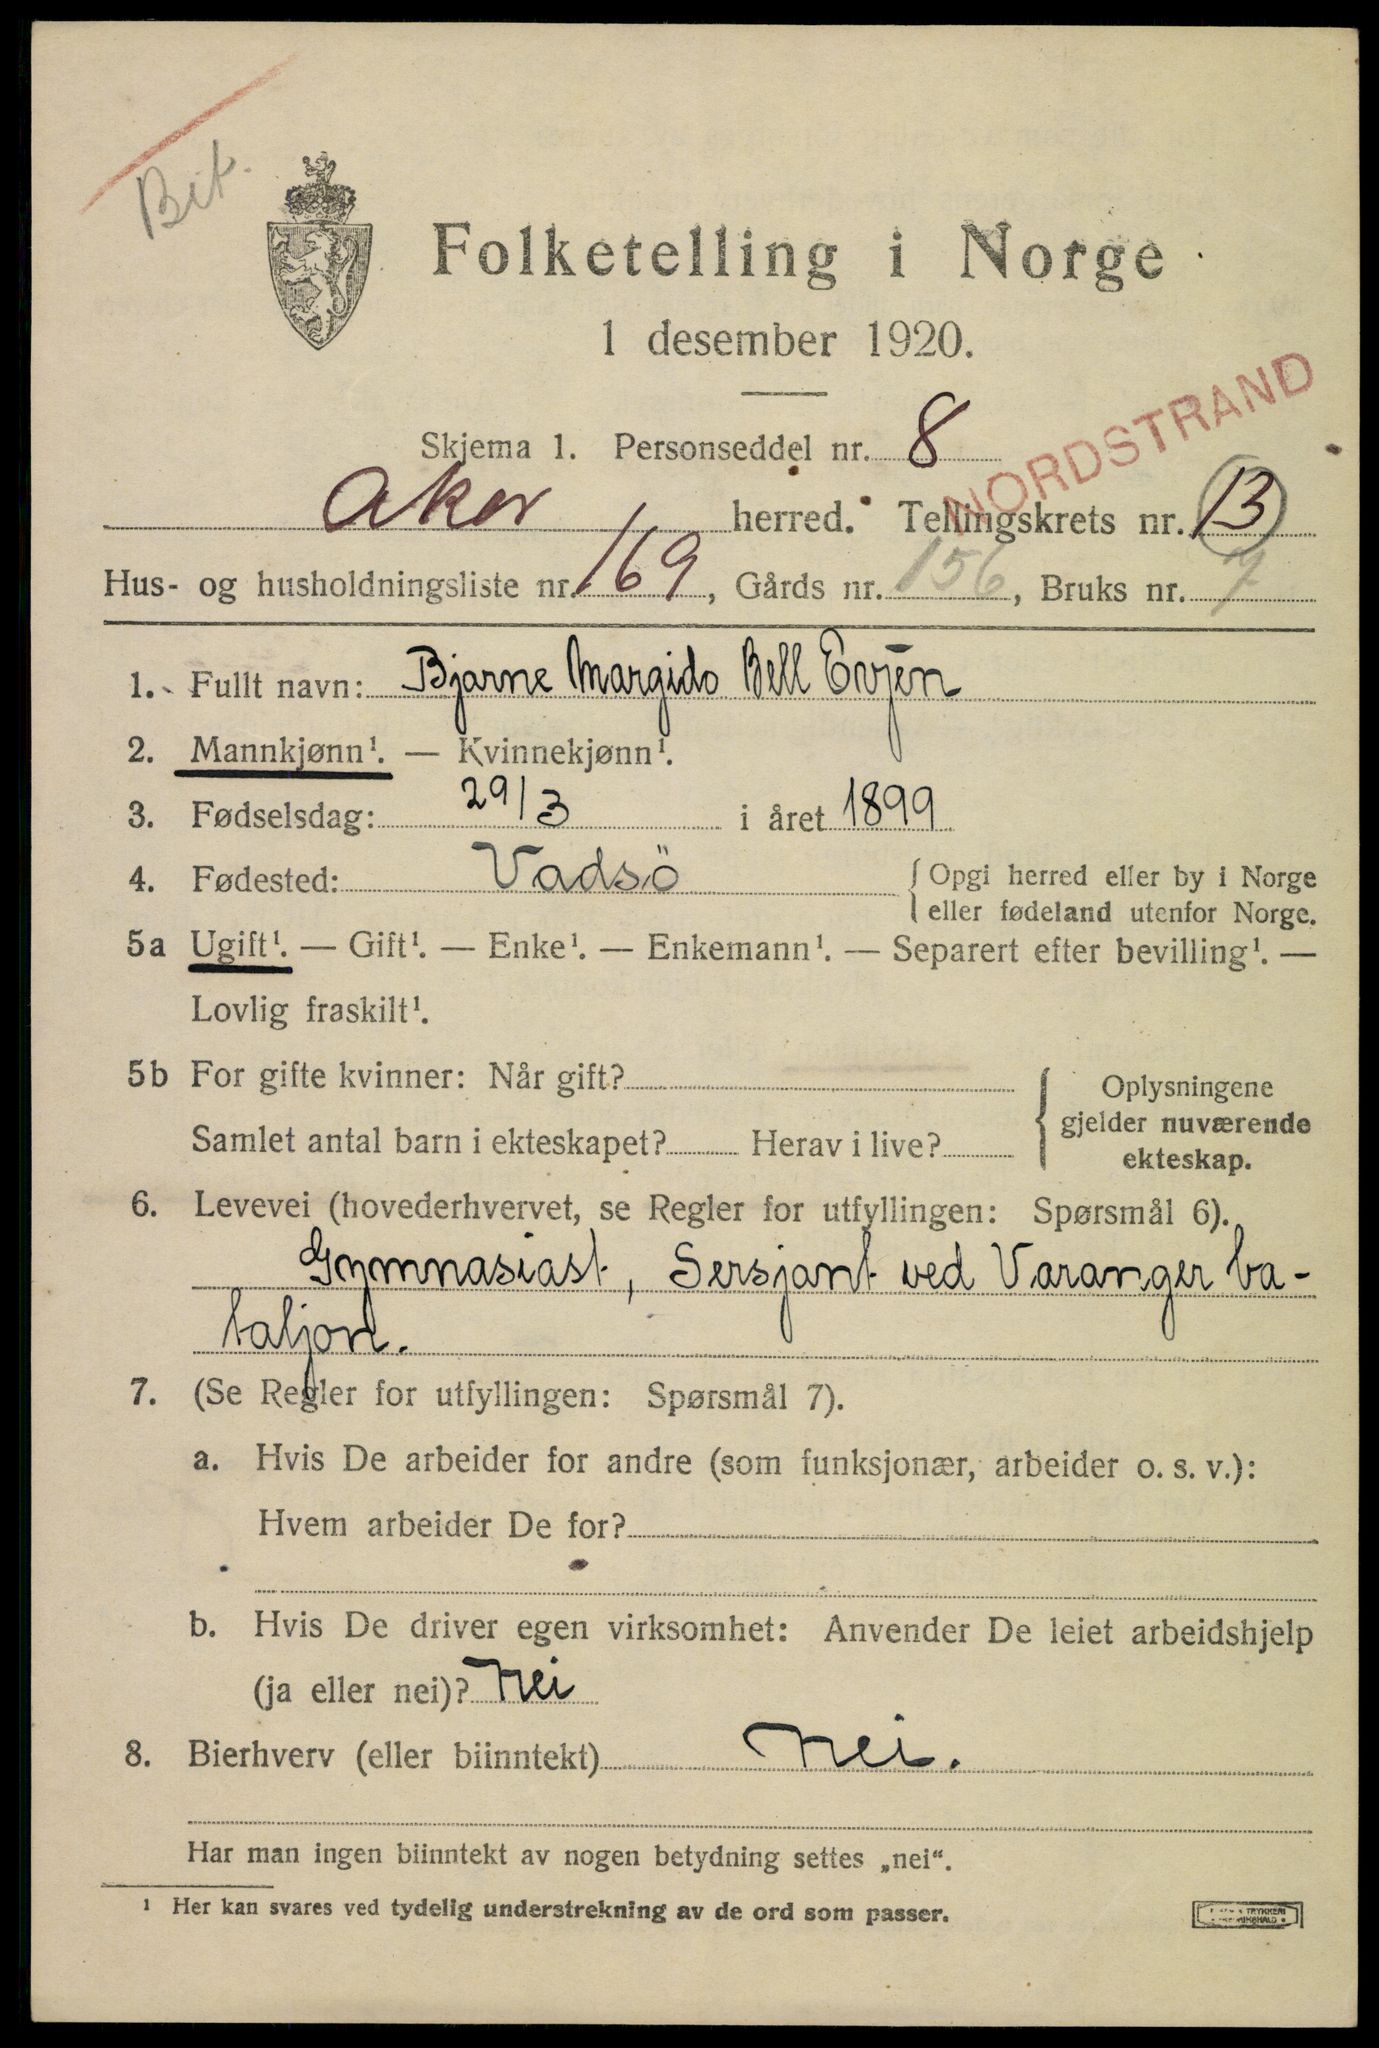 Bit.
Folketelling i Norge
1 desember 1920.
NORDSTRAND
Skjema 1. Personseddel nr. 8
Aker herred. Tellingskrets nr. 13
Hus- og husholdningsliste nr. 169, Gårds nr. 156, Bruks nr. 7
1. Fullt navn: Bjarne Margido Bell Evjen
2. Mannkjønn¹. — Kvinnekjønn¹.
3. Fødselsdag: 29/3 i året 1899
4. Fødested: Vadsö { Opgi herred eller by i Norge
eller fødeland utenfor Norge.
5a Ugift¹. — Gift¹. — Enke¹. — Enkemann¹. — Separert efter bevilling¹. —
Lovlig fraskilt¹.
5b For gifte kvinner: Når gift?
Samlet antal barn i ekteskapet? Herav i live?
{ Oplysningene
gjelder nuværende
ekteskap.
6. Levevei (hovederhvervet, se Regler for utfyllingen: Spørsmål 6).
Gymnasiast, Sersjant ved Varanger ba-
taljon.
7. (Se Regler for utfyllingen: Spørsmål 7).
a. Hvis De arbeider for andre (som funksjonær, arbeider o. s. v.):
Hvem arbeider De for?
b. Hvis De driver egen virksomhet: Anvender De leiet arbeidshjelp
(ja eller nei)? Nei
8. Bierhverv (eller biinntekt) Nei.
Har man ingen biinntekt av nogen betydning settes „nei“.
¹ Her kan svares ved tydelig understrekning av de ord som passer.
TRYKKERI